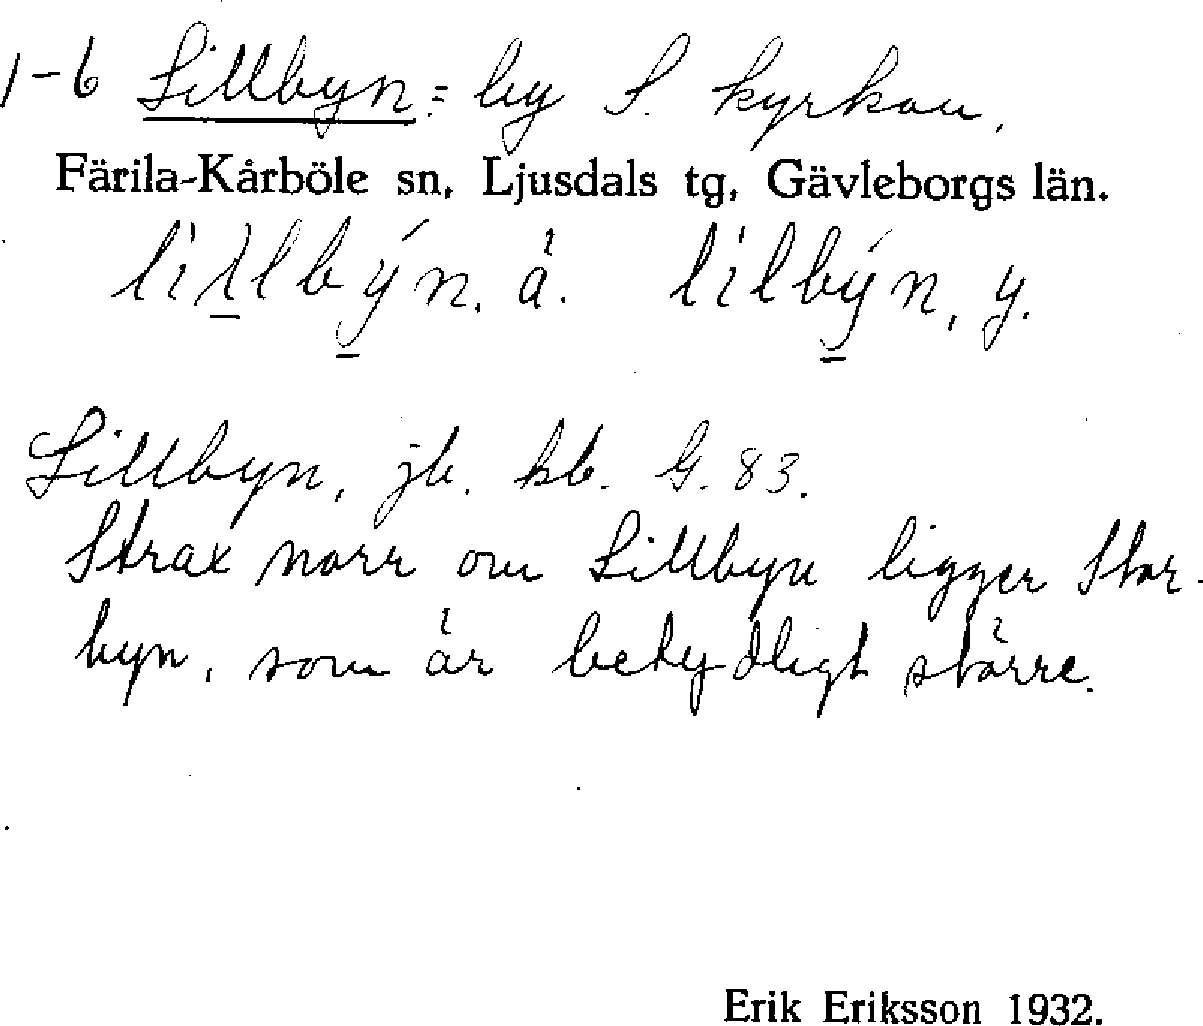 1-6 Lillbyn = by S. kyrkan.
Färila-Kårböle sn, Ljusdals tg, Gävleborgs län.
lillbýn, ä. lilbýn, y.
Lillbyn, jb. kb. G. 83.
Strax norr om Lillbyn ligger Stor-
byn, som är betydligt större.
Erik Eriksson 1932.